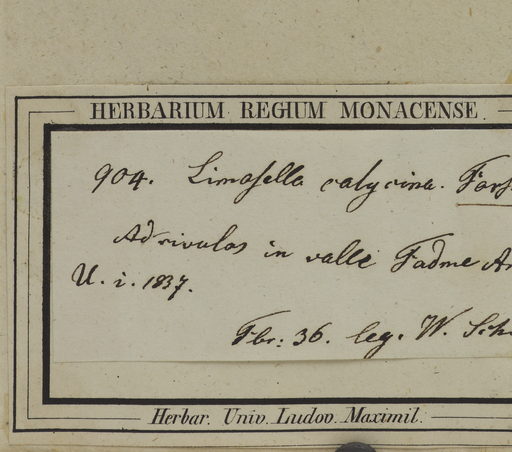 HERBARIUM REGIUM MONACENSE
904. Limosella calycina. Forsk
Ad rivulos in valle Fadme Ar
U. i. 1837.
Fbr: 36. leg. W. Sch
Herbar. Univ. Ludov. Maximil.